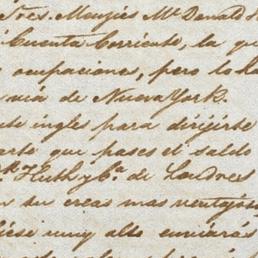 Sres. Menzies McDonald
Cuenta Corriente, la qu
ocupaciones, pero lo ha
via de Nueva York.
ingles para dirijirte
que pases el saldo
Huth y Ca. de Londres
su creas mas ventajos
muy alto enviarás